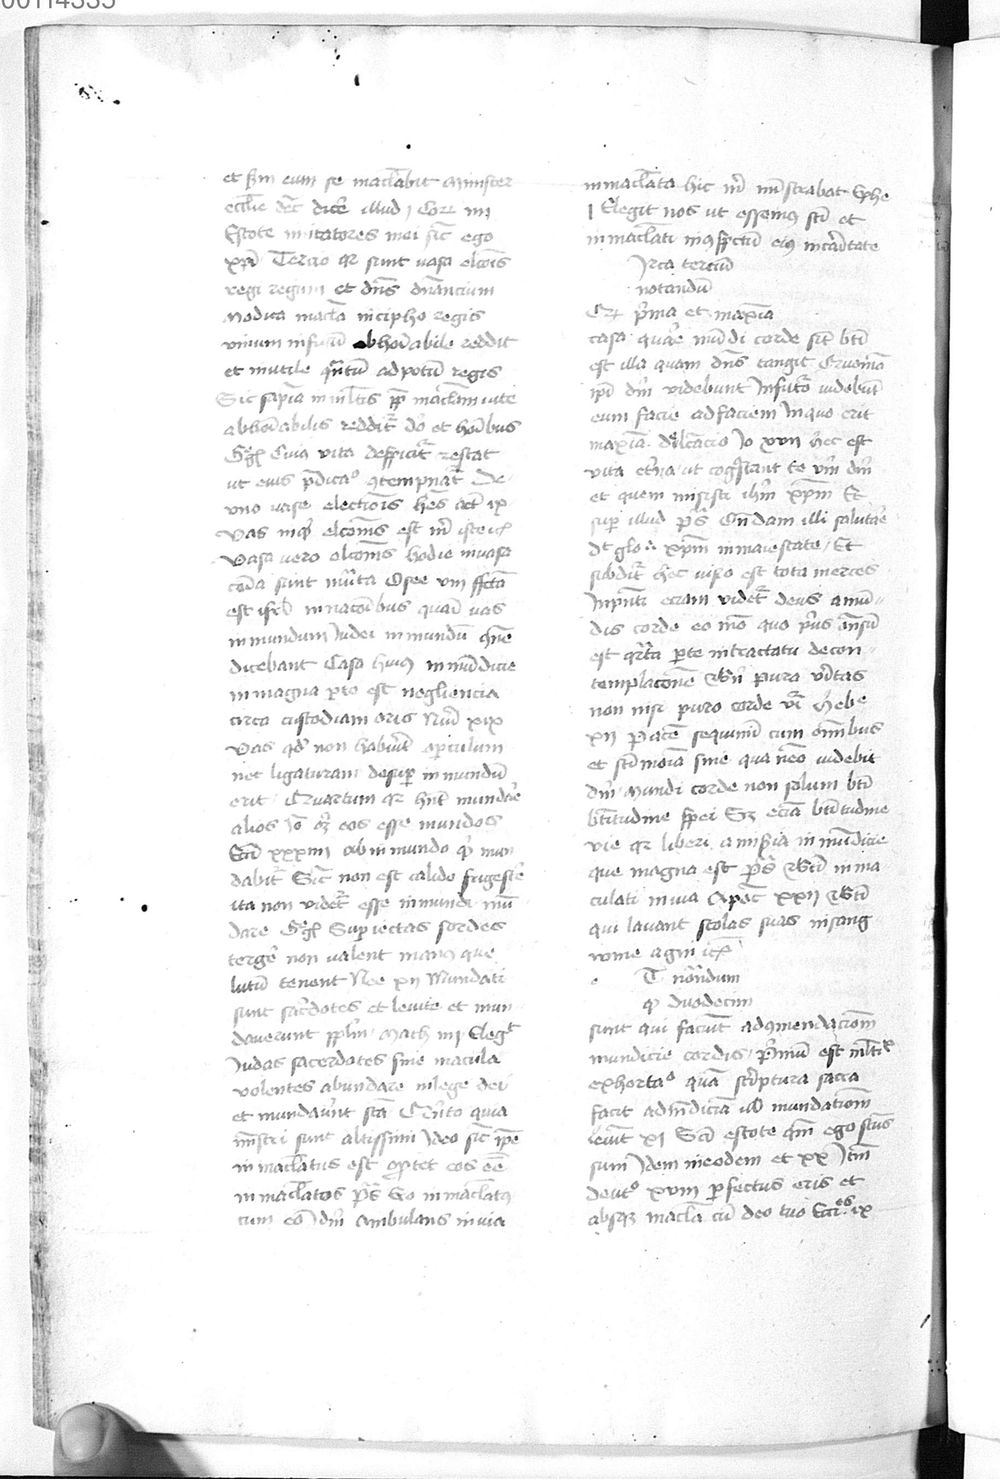 00114335
et sm eum se maclabit minister
ecclie dic dice illud 1 Cor iiii
Estote imitatores mei sic ego
xpi Tercio qr sunt vasa elcois
regi regum et dns dnancium
Modica macla in cipho regis
vinum infusu abhoiabile reddit
et inutile qntu ad potu regis
Sic sapia in mltis pp maclam vite
abhoiabilis reddit do et hoibus
Gg Cuius vita despicit restat
ut eius pdicao contempnat De
uno vase electiois hes act ix
Vas inq elcois est m iste ic
Vasa vero elcois hodie in vasa
coda sunt mutta Osee viii fcta
est isrl in nacoibus quasi vas
in mundum Iudei in mundu qne
dicebant Casa huius inmudicie
in magna pte est negligencia
circa custodiam oris Nu xix
Vas qd non habuit opculum
nec ligaturam desup in mundu
erit Quartum qr hnt mundare
alios Io oz eos esse mundos
Ecci xxxiiii ab in mundo q mun
dabit Sic non est calido frigescere
ita non videt esse inmundi mu
dare Gg Supiectas sordes
terge non valent manus que
lutu tenent Nee xii Mundati
sunt sacdotes et levite et mun
daverunt pplm Mach iiii Elegt
Iudas sacerdotes sine macula
volentes abundare in lege dei
et mundavit sca Quito quia
mistri sunt altissimi Ideo sic ipe
in maclatus est optet eos ee
in maclatos ps Ero in maclatus
cum eo Idm Ambulans in via
inmaclata hic m mistrabat Ephe
1 Elegit nos ut essemus sci et
inmaclati in cspctu eius in caitate
Irca terciu
notandu
Qr pma et maxia
casa quare mudi corde sit bti
est illa quam dns tangit Quonia
ipi dm videbunt In futuro videbut
eum facie ad faciem In quo erit
maxia dilcacio Io xvii hec est
vita etna ut cogscant te vm dm
et quem misisti ihm xpm Et
sup illud ps Ondam illi salutare
dt glo xpm in maiestate Et
subdit hec visio est tota merces
In pnti eciam videt deus a mu
dis corde eo mo quo pus onsu
est qrta pte in tractatu de con
templacone Bni pura vitas
non nisi puro corde vi Hebe
xii pacem sequimi cum omibus
et scimoia sine qua neo videbit
dm Mundi corde non solum bti
btitudine spei Sz ecia btitudine
vie qr liberi a miseria in mudicie
que magna est ps Bti in ma
culati in via Apoc xxii Bti
qui lavant stolas suas in sang
wine agni ic
T notandum
q duodecim
sunt qui faciut ad comendaciom
mundicie cordis pmu est mltix
exhortao qua scriptura sacra
facit ad mudicia ul mundaciom
levit xi Sci estote qm ego scus
sum Idem in eodem et xx Item
deuto xviii perfectus eris et
absqz macla cu deo tuo Ecces ix